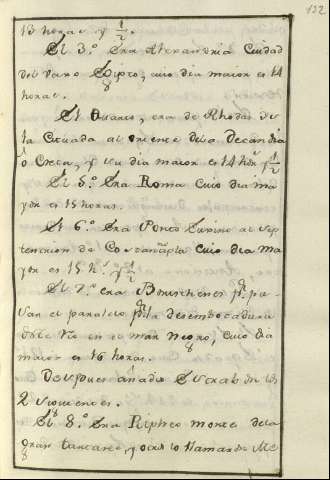 122
13 horas y 1/2
El 3.º Era Alexandria Ciudad
del vaxo Egipto, cuio dia maior es 14
horas.
El Quarto, era de Rhodas si
tuada al oriente dela De Candia
ó Creta, y su dia maior es 14 hor y 1/2
El 5.º Era Roma Cuio dia ma
yor es 15 horas.
El 6.º Era Ponto Euxino al sep
tentrion de Constanopla cuio dia ma
yor es 15 h.s y 1/2
El 7.º era Boristhenes p.r pa
sar el paralelo p.r la desembocadura
deste rio en el mar Negro, cuio dia
maior es 16 horas.
Despues añadio Estrabon los
2 siguientes.
El 8.º Era Ripheo monte dela
gran tartarea, y otros lo llamar de Me